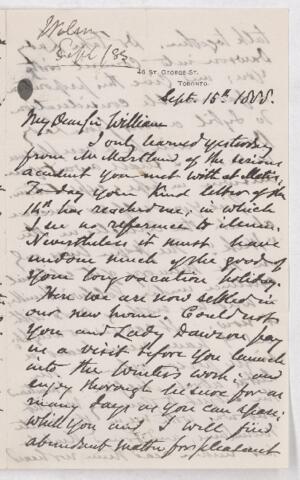 Wilson
Sept/88
46 ST. GEORGE ST.
TORONTO.
Sept. 15th 1888.
My Dear Sir William
I only learned yesterday
from Mr Martland of the serious
accident you met with at Metis.
Today your kind letter of the
14th has reached me; in which
I see no reference to illness.
Nevertheless it must have
undone much of the good of
your long vacation holiday.
Here we are now settled in
our new home. Could not
you and Lady Dawson pay
us a visit before you launch
into the winter's work; and
enjoy thorough leisure for as
many days as you can spare;
while you and I will find
abundant matter for pleasant